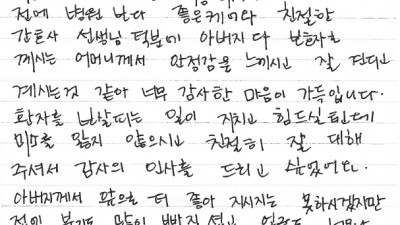 전에 병원 보다 좋은케어와 친절한
간호사 선생님 덕분에 아버지 다 보호자
께서는 어머니께서 안정감을 느끼시고 잘 견디고
계시는것 같아 너무 감사한 마음이 가득입니다.
환자를 보살피는 일이 지치고 힘드실텐데
미소를 잃지 않으시고 친절히 잘 대해
주셔서 감사의 인사를 드리고 싶었어요.
아버지께서 앞으로 더 좋아 지시지는 못하시겠지만
전에 붓기도 많이 빠지셨고